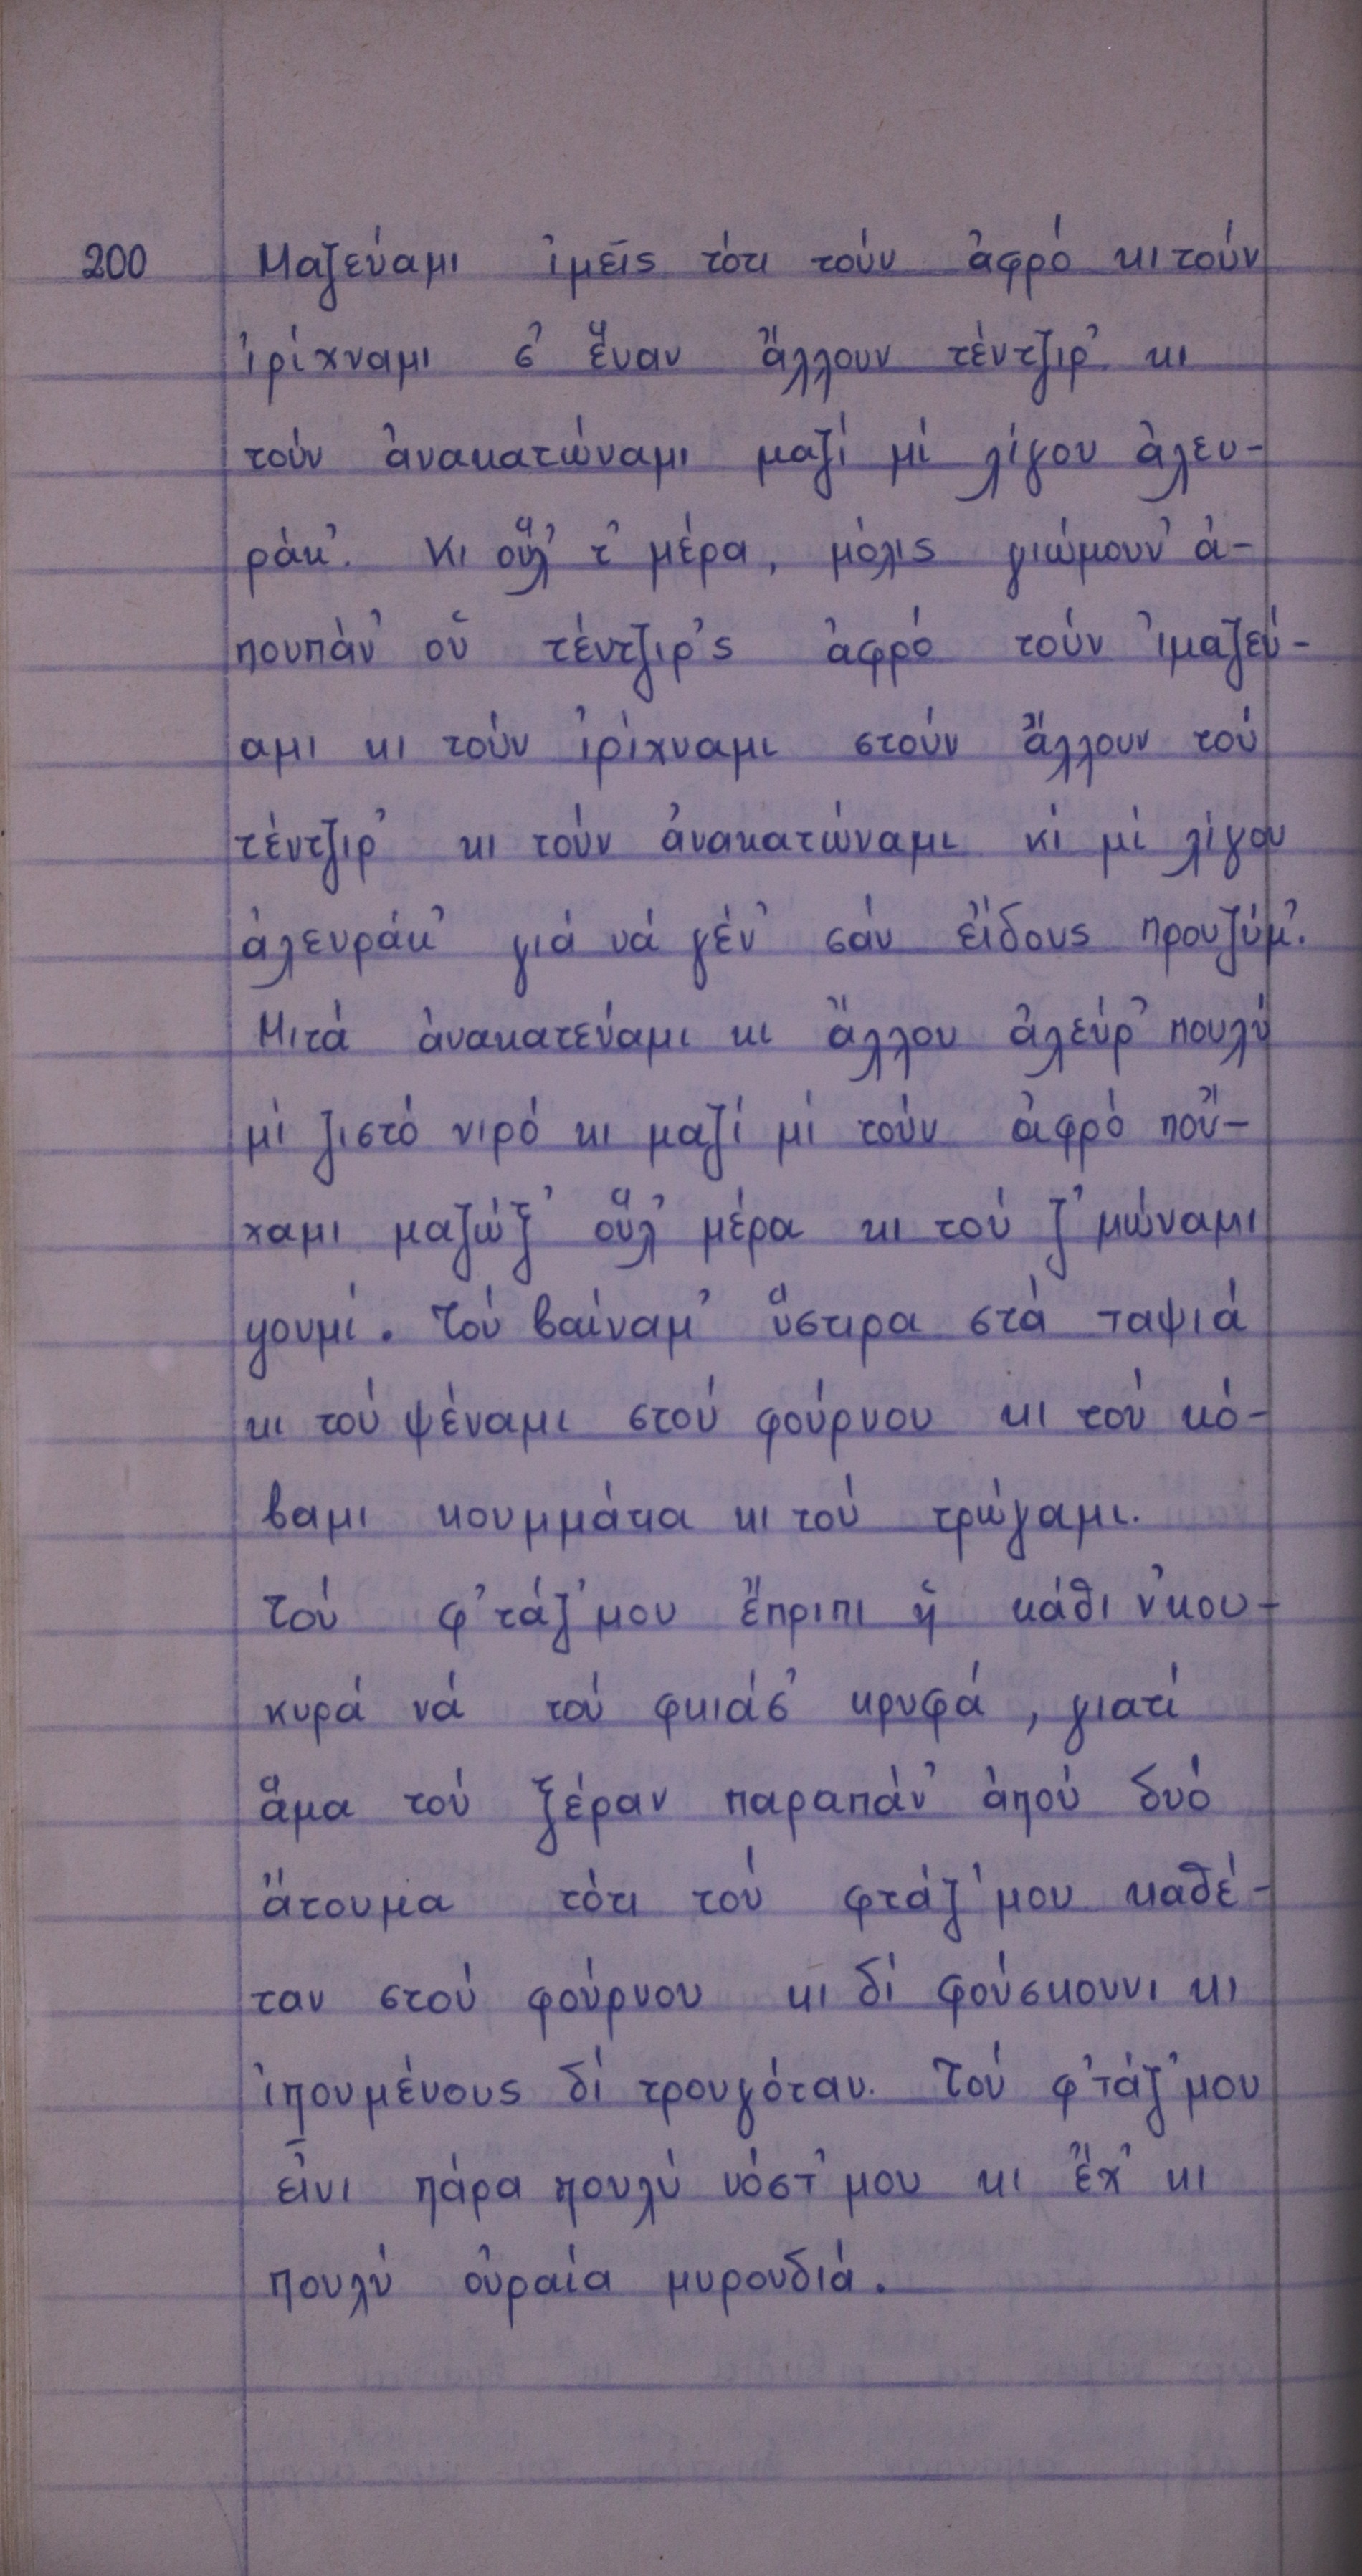 200 Μαζεύαμι ἰμεῖς τότι τούν ἀφρό κι τούν
ἰρίχναμι σ᾿ ἕναν ἄλλουν τέντζιρ᾿ κι
τούν ἀνακατώναμι μαζί μί λίγου ἀλευ-
ράκ᾿. Κι οὕλ᾿ τ᾿ μέρα, μόλις γιώμουν᾿ ἀ-
πουπάν᾿ οὑ τέντζιρ᾿ς ἀφρό τούν ᾿ιμαζεύ-
αμι κι τούν ἰρίχναμι στούν ἄλλουν τού
τέντζιρ᾿ κι τούν ἀνακατώναμι κί μί λίγου
ἀλευράκ᾿ γιά νά γέν᾿ σάν εἴδους προυζύμ᾿.
Μιτά ἀνακατεύαμι κι ἄλλου ἀλεύρ᾿ πουλύ
μί ζιστό νιρό κι μαζί μί τούν ἀφρό πού-
χαμι μαζώξ᾿ οὕλ᾿ μέρα κι τού ζ᾿μώναμι
γουμί. Τού βαίναμ᾿ ὕστιρα στά ταψιά
κι τού ψέναμι στού φούρνου κι τού κό-
βαμι κουμμάτια κι τού τρώγαμι.
Τού φ᾿τάζ᾿μου ἔπριπι ἡ κάθι ν᾿κου-
κυρά νά τού φκιάσ᾿ κρυφά, γιατί
ἅμα τού ξέραν παραπάν᾿ ἀπού δυό
ἄτουμα τότι τού φτάζ᾿μου καθέ-
ταν στού φούρνου κι δί φούσκουνι κι
ἰπουμένους δί τρουγόταν. Τού φ᾿τάζ᾿μου
εἶνι πάρα πουλύ νόστ᾿μου κι ἔχ᾿ κι
πουλύ οὐραία μυρουδιά.